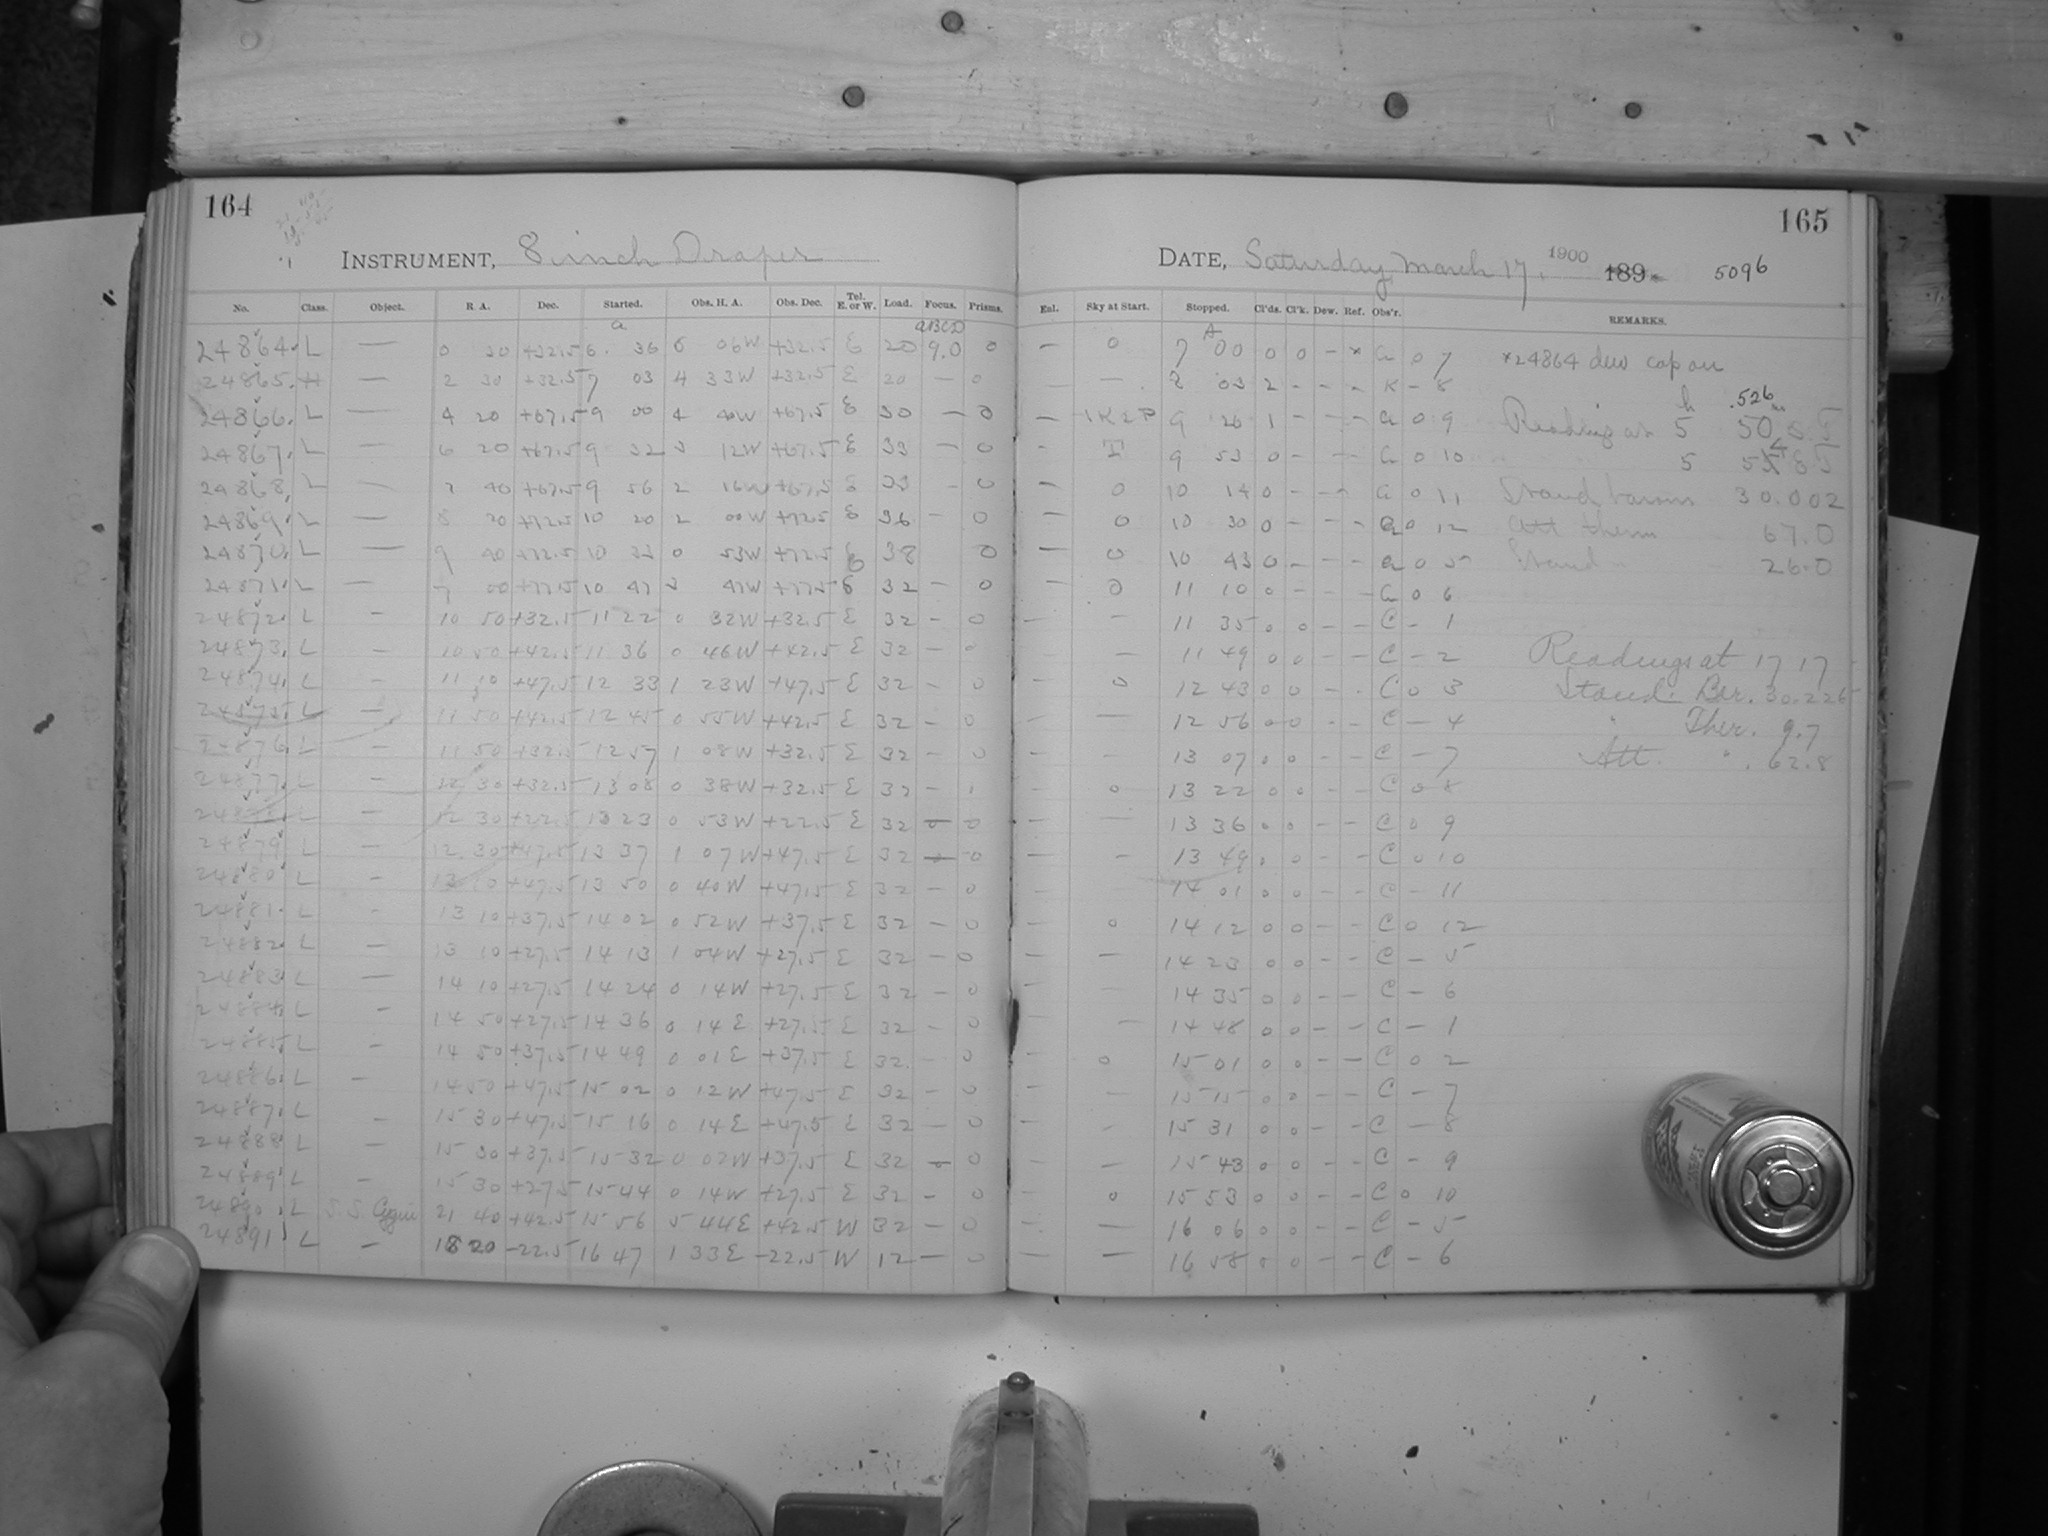 164
INSTRUMENT, 8 inch Draper
No. Class. Object. R. A. Dec. Started. Obs. H. A. Obs. Dec. Tel. E. or W. Load. Focus. Prisms.
a aBCD
24864. L — 0 30 +32.5 6. 36 6 06W +32.5 E 20 9.0 0
24865. H — 2 30 +32.5 7 03 4 33W +32.5 E 20 — 0
24866. L — 4 20 +67.5 9 00 4 40W +67.5 E 30 — 0
24867. L — 6 20 +67.5 9 32 3 12W +67.5 E 33 — 0
24868. L — 7 40 +67.5 9 56 2 16W +67.5 E 33 — 0
24869. L — 8 20 +72.5 10 20 2 00W +72.5 E 36 — 0
24870. L — 9 40 +72.5 10 33 0 53W +72.5 E 38 0
24871. L — 7 00 +77.5 10 47 3 47W +77.5 E 32 — 0
24872. L — 10 50 +32.5 11 22 0 32W +32.5 E 32 — 0
24873. L — 10 50 +42.5 11 36 0 46W +42.5 E 32 — 0
24874. L — 11 10 +47.5 12 33 1 23W +47.5 E 32 — 0
24875. L — 11 50 +42.5 12 45 0 55W +42.5 E 32 — 0
24876. L — 11 50 +32.5 12 57 1 08W +32.5 E 32 — 0
24877. L — 12 30 +32.5 13 08 0 38W +32.5 E 32 — 1
24878. L — 12 30 +22.5 13 23 0 53W +22.5 E 32 — 0
24879 L — 12 30 +47.5 13 37 1 07W +47.5 E 32 — 0
24880 L — 13 10 +47.5 13 50 0 40W +47.5 E 32 — 0
24881. L — 13 10 +37.5 14 02 0 52W +37.5 E 32 — 0
24882. L — 13 10 +27.5 14 13 1 04W +27.5 E 32 — 0
24883. L — 14 10 +27.5 14 24 0 14W +27.5 E 32 — 0
24884. L — 14 50 +27.5 14 36 0 14E +27.5 E 32 — 0
24885. L — 14 50 +37.5 14 49 0 01E +37.5 E 32. — 0
24886. L — 14 50 +47.5 15 02 0 12W +47.5 E 32 — 0
24887. L — 15 30 +47.5 15 16 0 14E +47.5 E 32 — 0
24888 L — 15 30 +37.5 15 32 0 02W +37.5 E 32 — 0
24889 L — 15 30 +27.5 15 44 0 14W +27.5 E 32 — 0
24890. L S.S. Cygni 21 40 +42.5 15 56 5 44E +42.5 W 32 — 0
24891 L — 18 20 -22.5 16 47 1 33E -22.5 W 12 — 0
165
DATE, Saturday March 17. 1900 189 5096
Enl. Sky at Start. Stopped. Cl'ds. Cl'k. Dew. Ref. Obs'r. REMARKS.
A
— 0 7 00 0 0 — * a 0 7 *24864 dew cap on
— 8 03 2 - - - K - 8
h .526 m
— 9 26 1 - - - a 0 9 Reading at 5 50
- 9 53 0 - - - a 0 10 5
— 0 10 14 0 - - - a 0 11 Stand barom 30.002
0 10 30 0 - - - a 0 12 Att therm 67.0
— 0 10 43 0 - - - a 0 5 Stand - 26.0
— 0 11 10 0 - - - a 0 6
— — 11 35 0 0 - - C - 1
— — 11 49 0 0 - - C - 2 Readings at 17 17
— 0 12 43 0 0 - - C 0 3 Stand. Bar. 30.226
— — 12 56 0 0 - C - 4 " Ther. 9.7
— — 13 07 0 0 - - C - 7 Att. " . 62.8
— 0 13 22 0 0 - - C 0 8
— — 13 36 0 0 - - C 0 9
— — 13 49 0 0 - - C 0 10
— — 14 01 0 0 - - C - 11
— 0 14 12 0 0 - - C 0 12
— — 14 23 0 0 - - C - 5
— — 14 35 0 0 - - C - 6
— — 14 48 0 0 - - C - 1
— 0 15 01 0 0 - - C 0 2
— — 15 15 0 0 - - C - 7
— — 15 31 0 0 - - C - 8
— — 15 43 0 0 - - C - 9
— 0 15 53 0 0 - - C 0 10
— — 16 06 0 0 - - C - 5
— — 16 58 0 0 - - C - 6